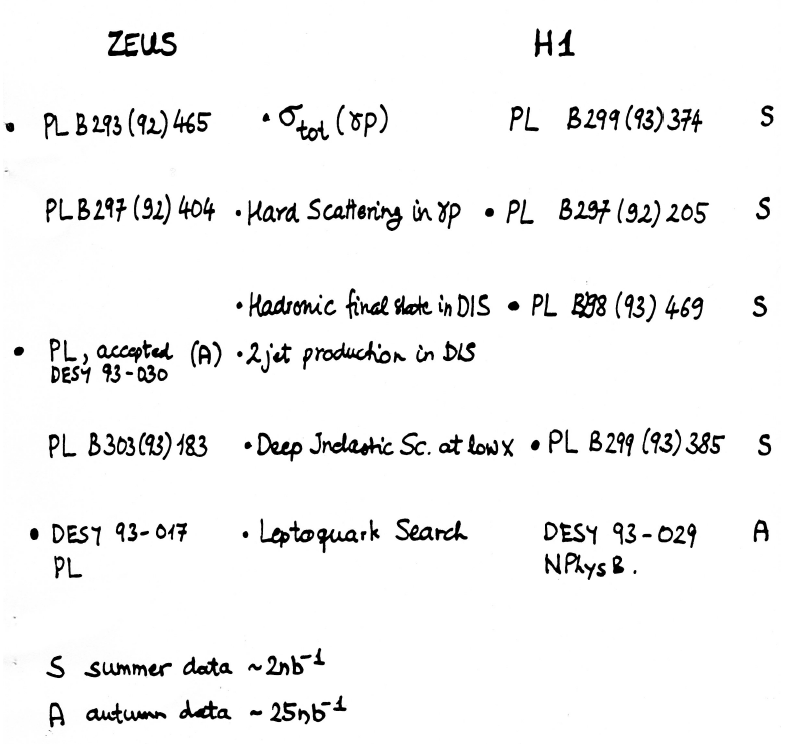 ZEUS H1
• PL B293 (92) 465 • σtot (γp) PL B299 (93) 374 S
PL B297 (92) 404 • Hard Scattering in γp • PL B297 (92) 205 S
• Hadronic final state in DIS • PL B298 (93) 469 S
• PL, accepted (A) • 2 jet production in DIS
DESY 93-030
PL B303 (93) 183 • Deep Inelastic Sc. at low x • PL B299 (93) 385 S
• DESY 93-017 • Leptoquark Search DESY 93-029 A
PL NPhys B.
S summer data ~2nb⁻¹
A autumn data ~25nb⁻¹